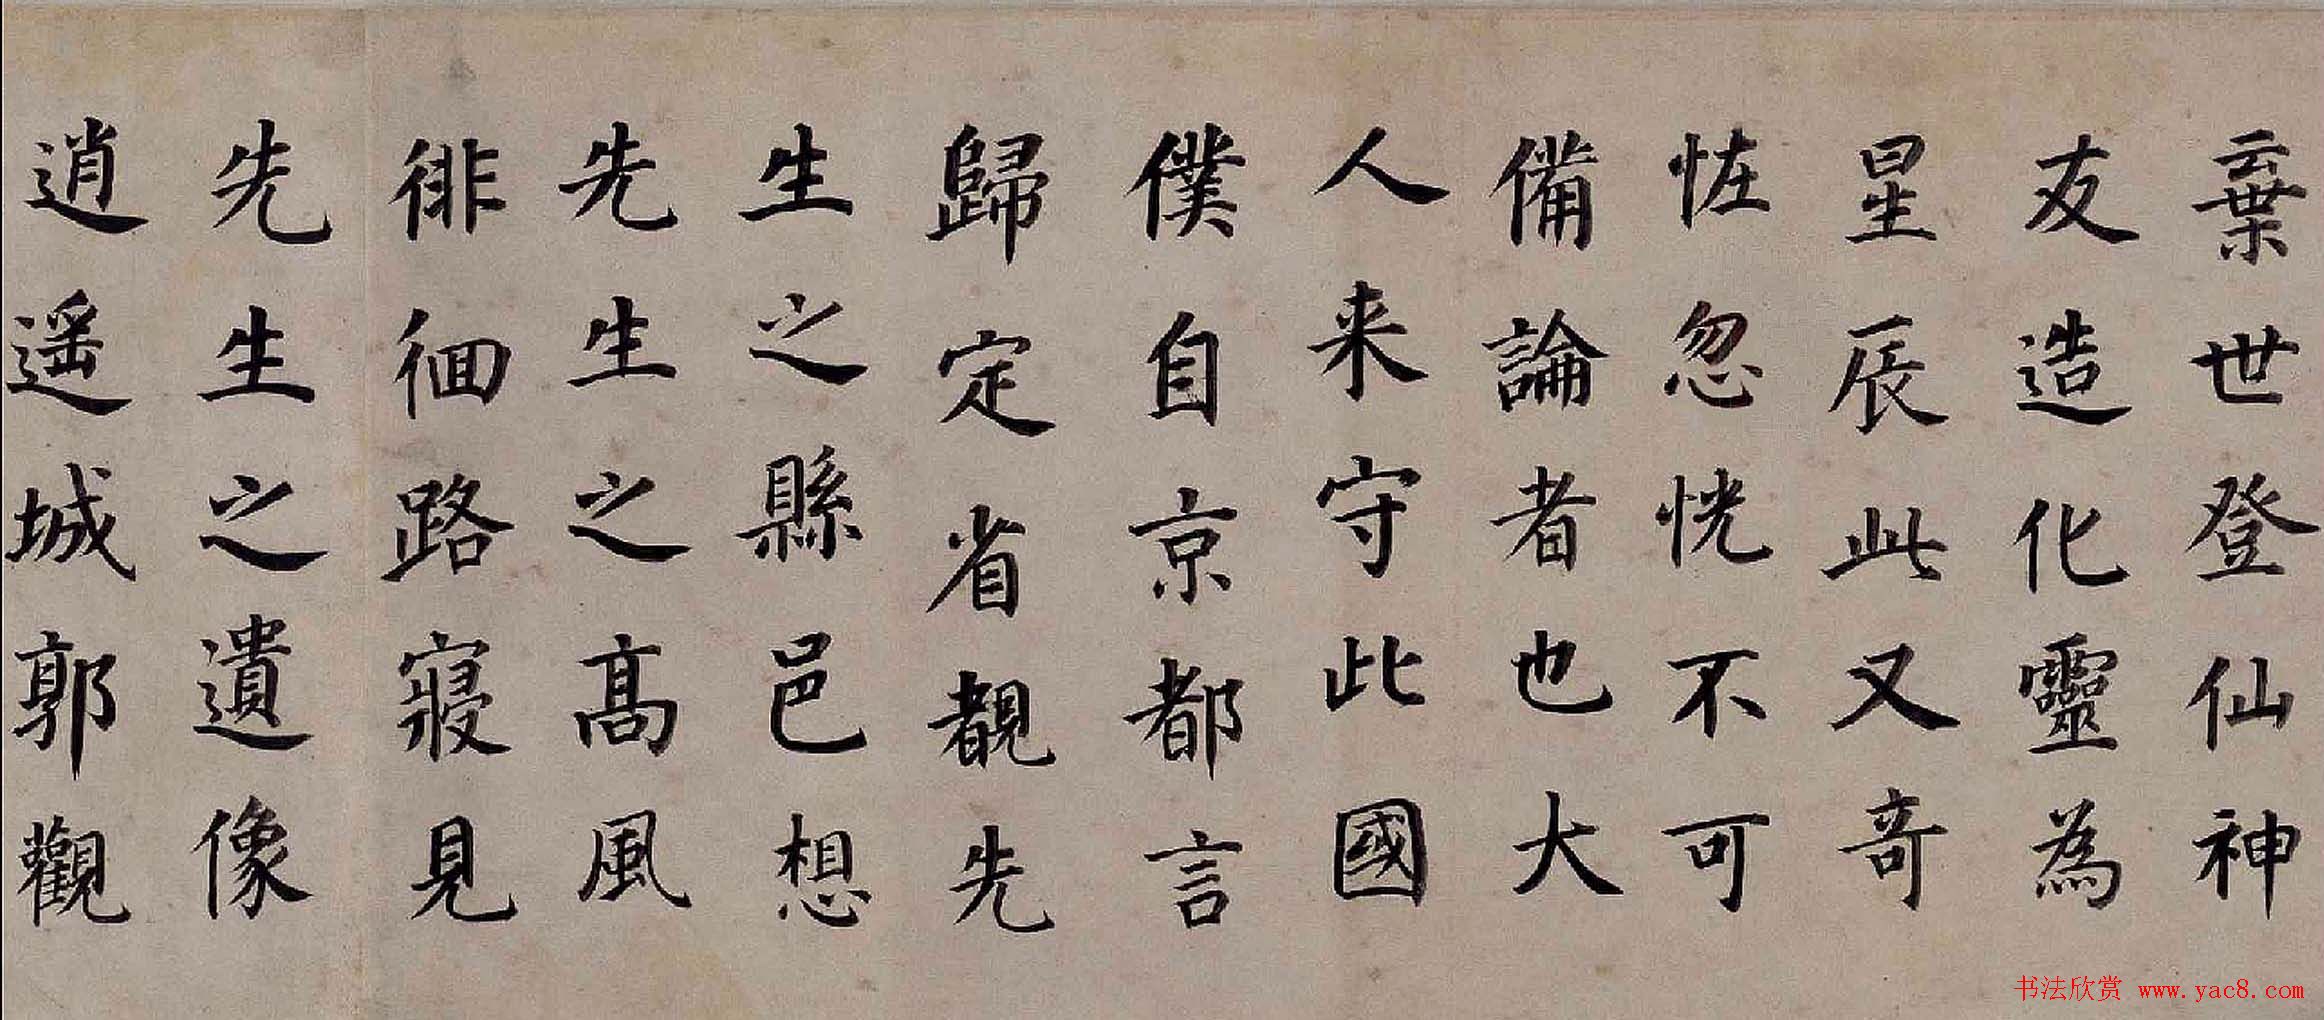 棄世登仙神
友造化靈為
星辰此又奇
恠忽恍不可
備論者也大
人来守此國
僕自京都言
歸定省覩先
生之縣邑想
先生之高風
徘徊路寢見
先生之遺像
逍遥城郭觀
书法欣赏 www.yac8.com